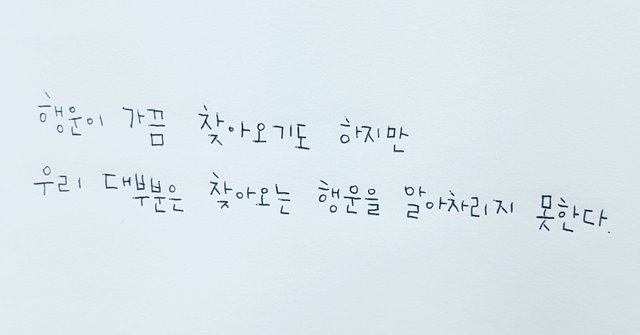 행운이 가끔 찾아오기도 하지만
우리 대부분은 찾아오는 행운을 알아차리지 못한다.